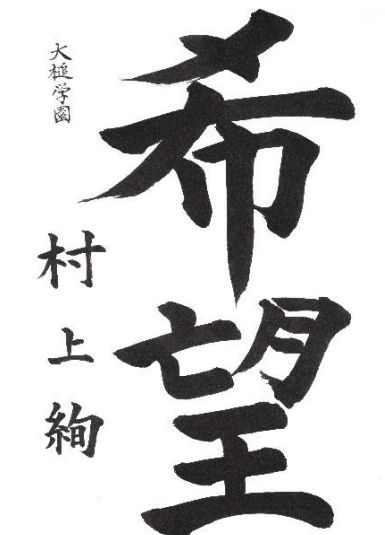 希望
大槌学園
村上絢